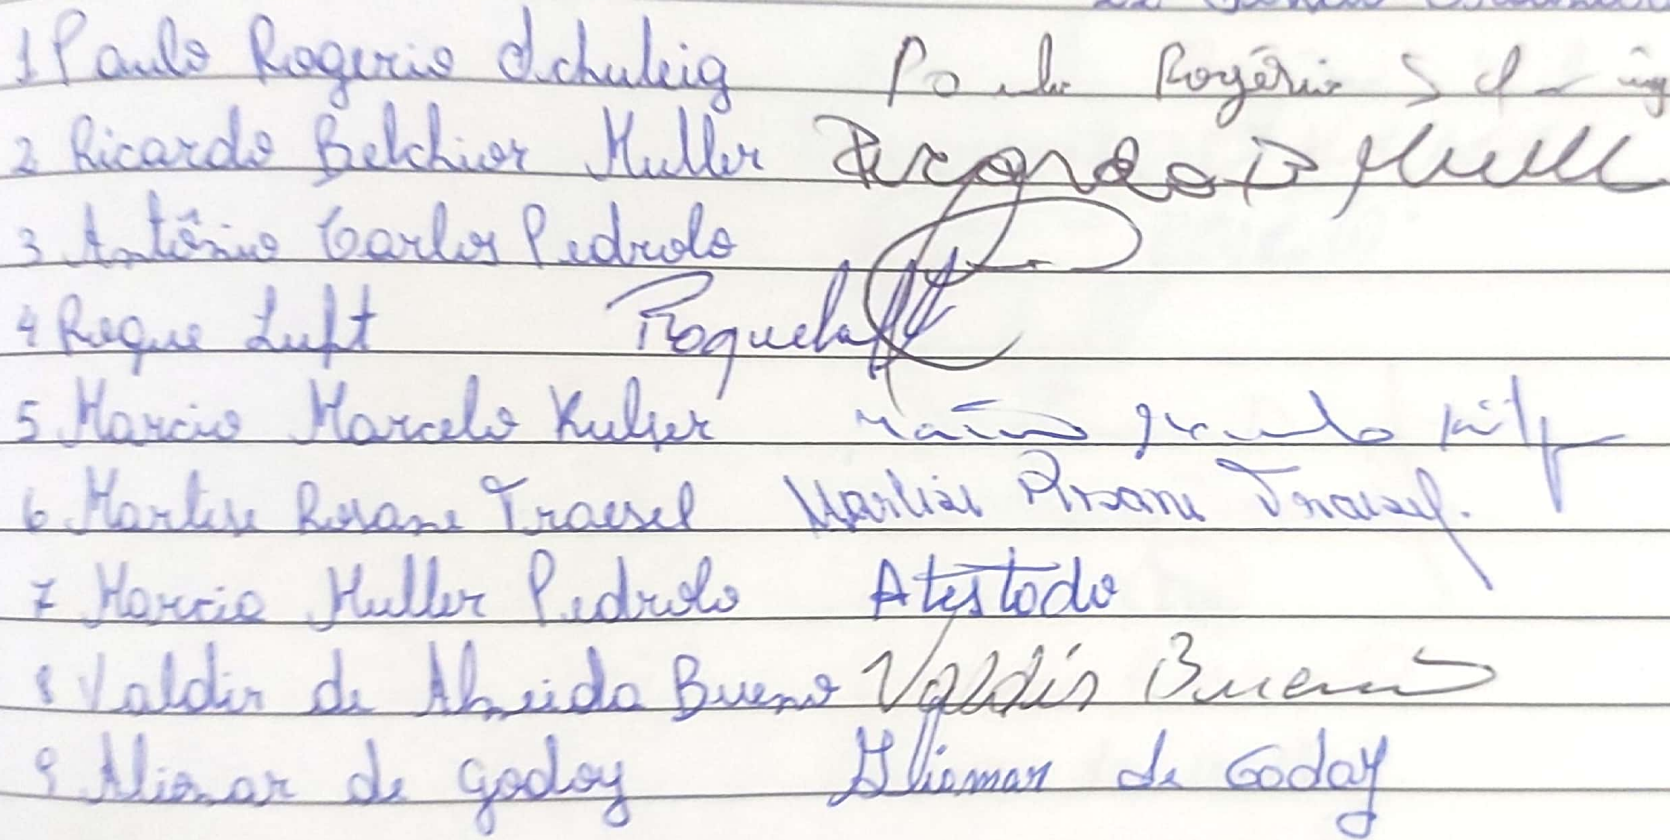 1 Paulo Rogerio Schuleig Paulo Rogério
2 Ricardo Belchior Muller Ricardo B Mull
3 Antônio Carlos Pedrolo
4 Roque Luft Roque Luft
5 Marcio Marcelo Kulzer
6 Marlise Rosane Traesel Marlise Rosane Traesel.
7 Marcia Muller Pedrolo Atestado
8 Valdir de Almeida Bueno Valdir Bueno
9 Aliomar de Godoy Aliomar de Godoy